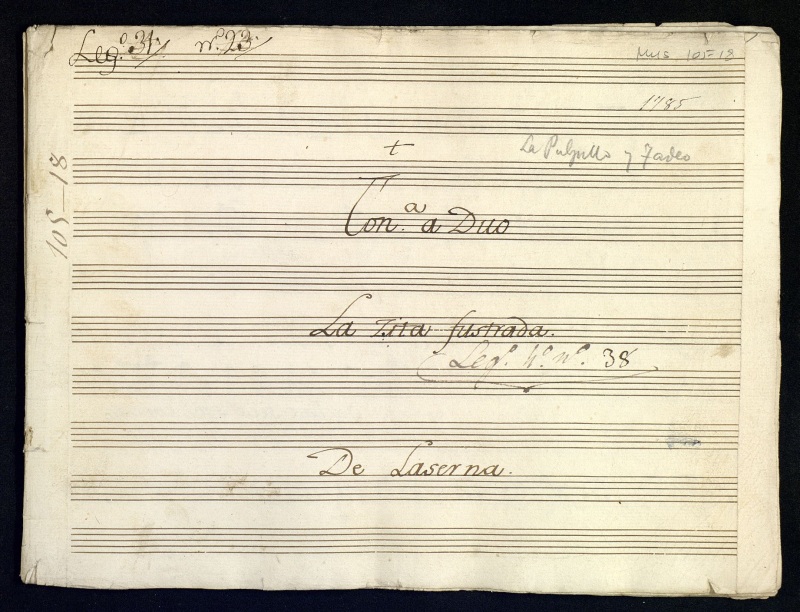 Leg.º 31. nº. 23.
Mus. 105-18
1785
+
La Pulpillo y Tadeo
105-18
Ton.ª a Duo
La Zita fustrada.
Leg.º 4.º nº. 38
De Laserna.